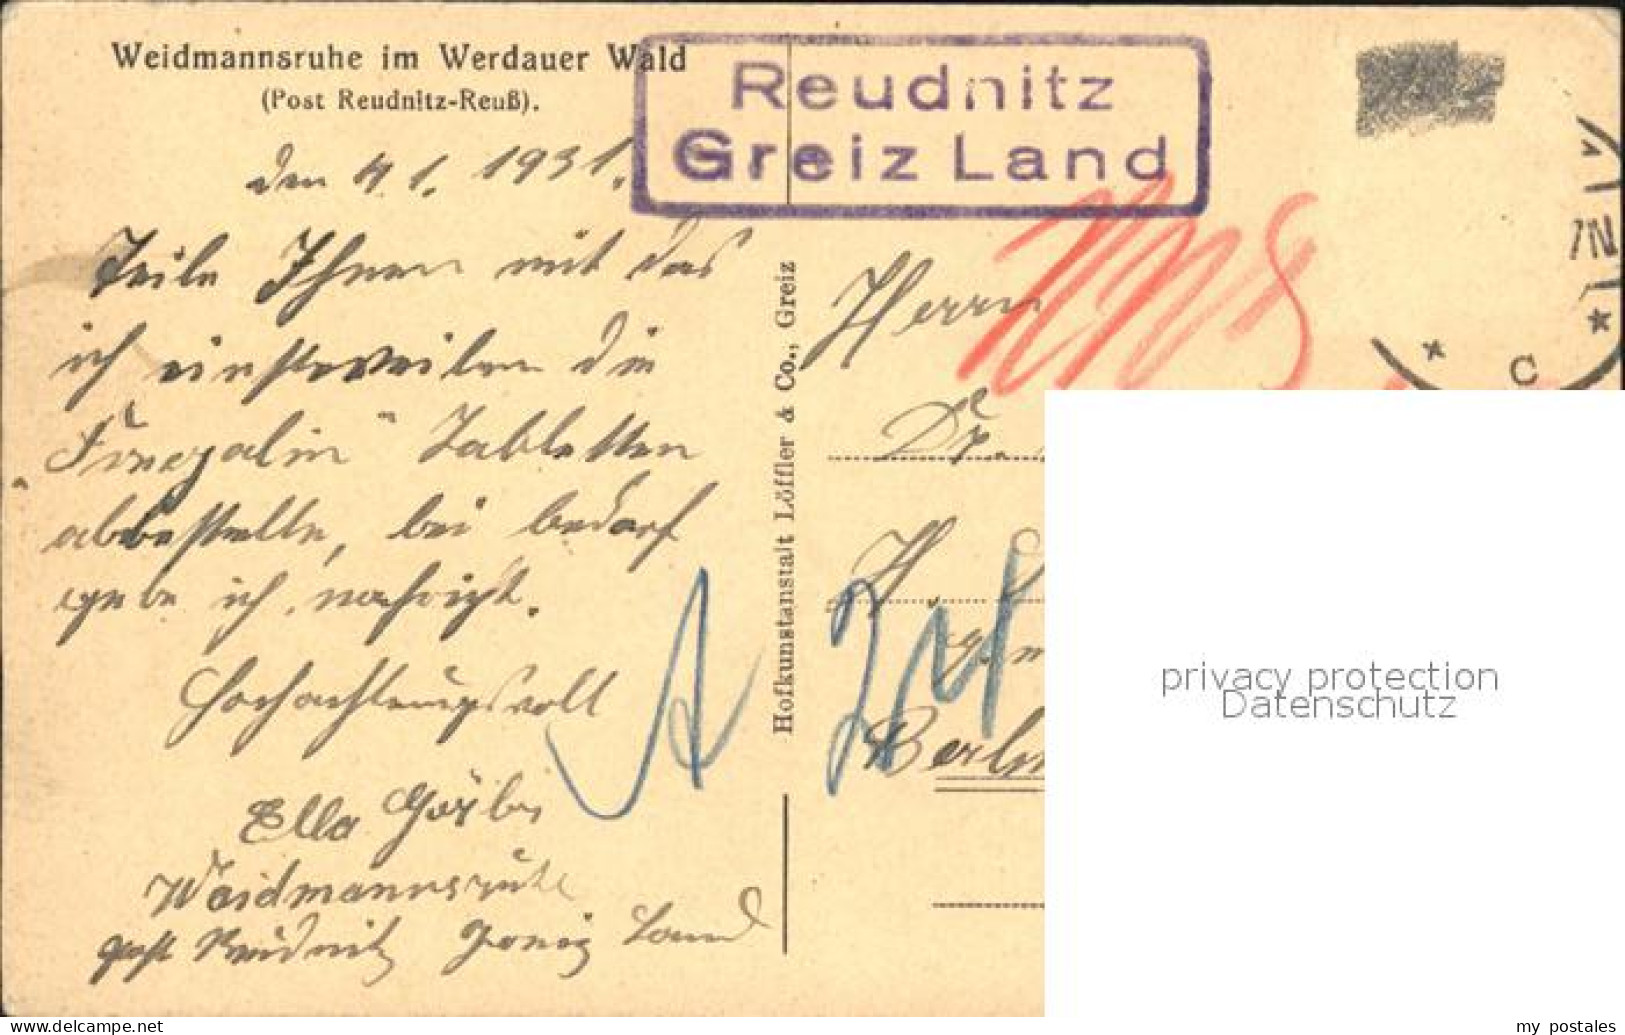 Weidmannsruhe im Werdauer Wald
(Post Reudnitz-Reuß).
Reudnitz
Greiz Land
den 4.1. 1931.
Teile Ihnen mit das
ich einstweilen die
Tabletten
abbestelle, bei bedarf
gebe ich nachricht.
Hochachtungsvoll
Ella
Weidmannsruhe
post Reudnitz Greiz Land
Hofkunstanstalt Löffler & Co., Greiz
Herrn
Dr.
Berlin
C
privacy protection
Datenschutz
www.delcampe.net
my_postales